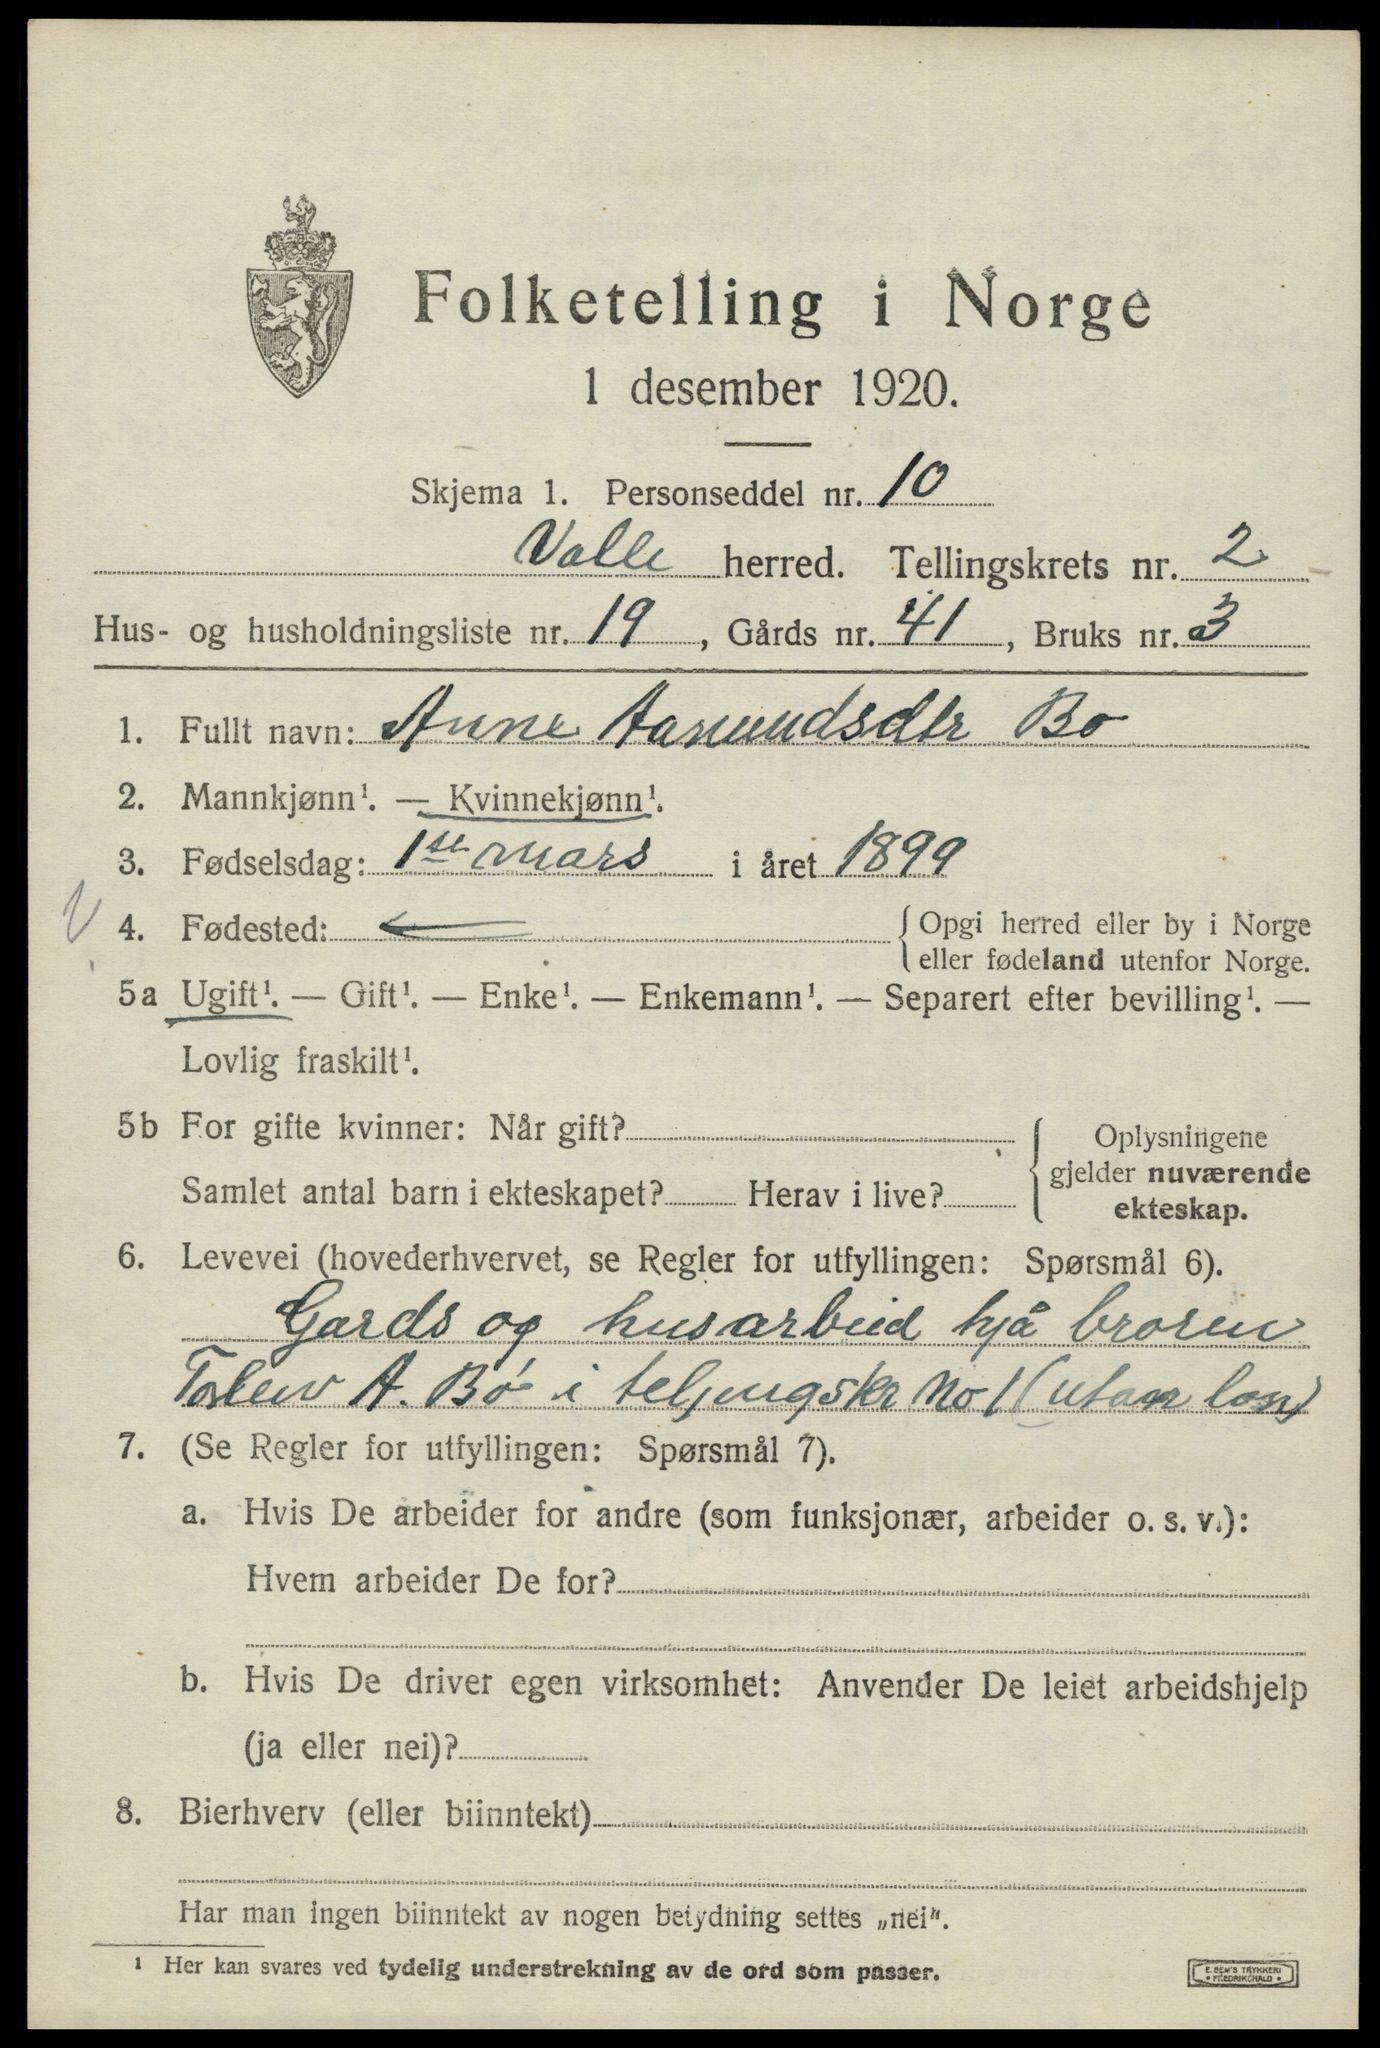 Folketelling i Norge
1 desember 1920.
Skjema 1. Personseddel nr. 10
Valle herred. Tellingskrets nr. 2
Hus- og husholdningsliste nr. 19, Gårds nr. 41, Bruks nr. 3
1. Fullt navn: Anne Aamundsdtr Bo
2. Mannkjønn¹. — Kvinnekjønn¹.
3. Fødselsdag: 1ste mars i året 1899
4. Fødested: { Opgi herred eller by i Norge
eller fødeland utenfor Norge.
5a Ugift¹. — Gift¹. — Enke¹. — Enkemann¹. — Separert efter bevilling¹. —
Lovlig fraskilt¹.
5b For gifte kvinner: Når gift?
Samlet antal barn i ekteskapet? Herav i live?
{ Oplysningene
gjelder nuværende
ekteskap.
6. Levevei (hovederhvervet, se Regler for utfyllingen: Spørsmål 6).
Gards og husarbeid hjå broren
Torleiv A. Bø i teljingskr No 1 (utan løn)
7. (Se Regler for utfyllingen: Spørsmål 7).
a. Hvis De arbeider for andre (som funksjonær, arbeider o. s. v.):
Hvem arbeider De for?
b. Hvis De driver egen virksomhet: Anvender De leiet arbeidshjelp
(ja eller nei)?
8. Bierhverv (eller biinntekt)
Har man ingen biinntekt av nogen betydning settes „nei".
¹ Her kan svares ved tydelig understrekning av de ord som passer.
E. SEM'S TRYKKERI
• FREDRIKSHALD •